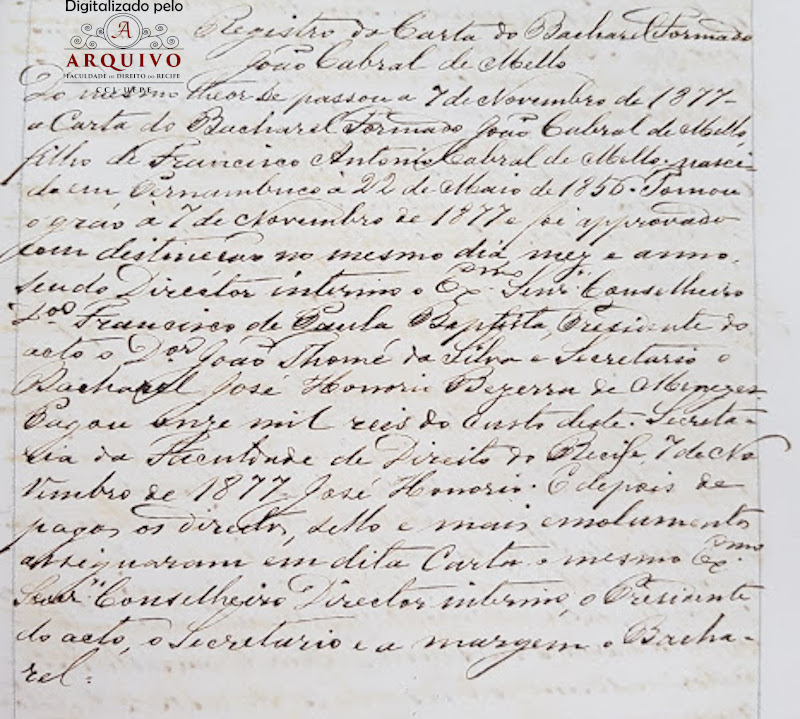 Digitalizado pelo
A
ARQUIVO
FACULDADE DE DIREITO DO RECIFE
CCJ UFPE
Registro da Carta do Bacharel Formado
João Cabral de Mello
Do mesmo theor se passou a 7 de Novembro de 1877-
a Carta do Bacharel Formado João Cabral de Mello,
filho de Francisco Antonio Cabral de Mello, nasci-
do em Pernambuco à 22 de Maio de 1856. Tomou
o gráo à 7 de Novembro de 1877 e foi approvado
com destincção no mesmo dia, mez e anno,
sendo Diréctor interino o Exmo. Senr. Conselheiro
Dor Francisco de Paula Baptista, Presidente do
acto o Dor João Thomé da Silva e Secretario o
Bacharel José Honorio Bezerra de Menezes
Pagou onze mil reis do custo deste. Secreta-
ria da Faculdade de Direito do Recife, 7 de No
vembro de 1877. José Honorio. E depois de
pagos os direitos, sello e mais emolumentos
assignaram em dita Carta o mesmo Exmo.
Senr. Conselheiro Director interino, o Presidente
do acto, o Secretario e a margem o Bacha-
rel.